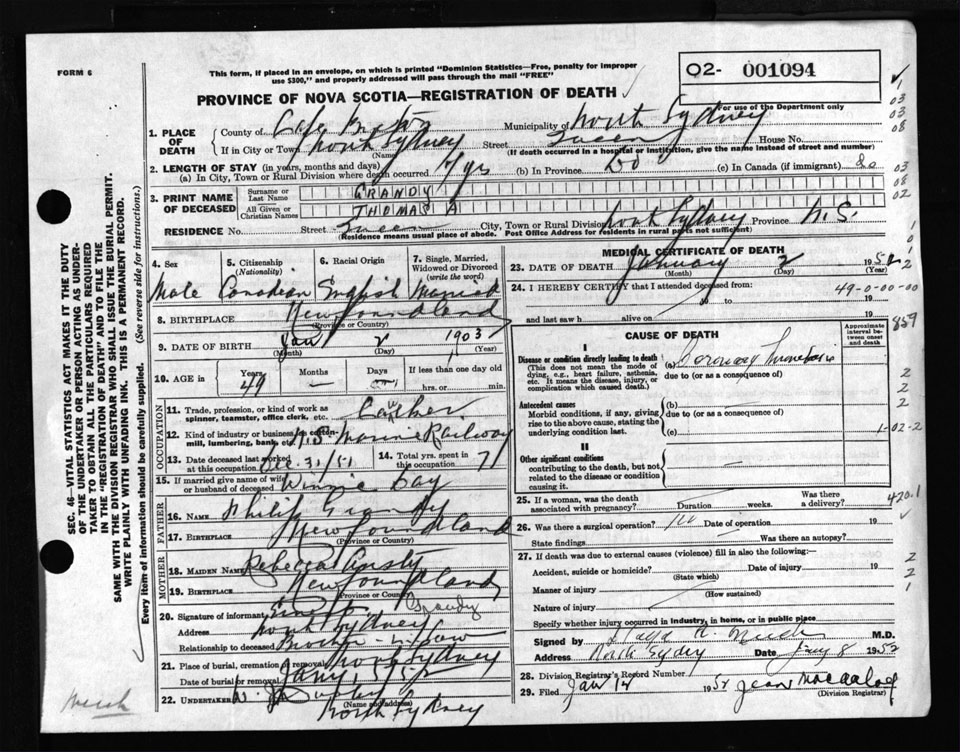 FORM 6
This form, if placed in an envelope, on which is printed "Dominion Statistics—Free, penalty for improper
use $300," and properly addressed will pass through the mail "FREE"
O2- 001094
For use of the Department only
PROVINCE OF NOVA SCOTIA—REGISTRATION OF DEATH
1. PLACE OF DEATH
County of Cape Breton Municipality of North Sydney
If in City or Town North Sydney Street Queen House No.
(Name) (If death occurred in a hospital or institution, give the name instead of street and number)
2. LENGTH OF STAY (in years, months and days)
(a) In City, Town or Rural Division where death occurred yrs (b) In Province Do (c) In Canada (if immigrant) do
3. PRINT NAME OF DECEASED
Surname or Last Name GRANDY
All Given or Christian Names THOMAS A
RESIDENCE No. Street Queen City, Town or Rural Division North Sydney Province N.S.
(Residence means usual place of abode. Post Office Address for residents in rural parts not sufficient)
4. Sex 5. Citizenship (Nationality) 6. Racial Origin 7. Single, Married, Widowed or Divorced (write the word)
Male Canadian English Married
8. BIRTHPLACE Newfoundland
(Province or Country)
9. DATE OF BIRTH Jan 2 1903
(Month) (Day) (Year)
10. AGE in Years Months Days If less than one day old
49 — — hrs. or min.
OCCUPATION
11. Trade, profession, or kind of work as
spinner, teamster, office clerk, etc.
12. Kind of industry or business, as cotton-
mill, lumbering, bank, N.S. Marine Railway
13. Date deceased last worked at this occupation Dec. 31/51 14. Total yrs. spent in this occupation 7
15. If married give name of wife or husband of deceased Winnie Day
FATHER
16. NAME Philip Grandy
17. BIRTHPLACE Newfoundland
(Province or Country)
MOTHER
18. MAIDEN NAME Rebecca
19. BIRTHPLACE Newfoundland
(Province or Country)
20. Signature of informant Grandy
Address North Sydney
Relationship to deceased Brother-in-law
21. Place of burial, cremation or removal North Sydney
Date of burial or removal Jany
22. UNDERTAKER
(Name and address)
North Sydney
MEDICAL CERTIFICATE OF DEATH
23. DATE OF DEATH January 2 1952
(Month) (Day) (Year)
24. I HEREBY CERTIFY that I attended deceased from:
49-0-00-00
19 to 19
and last saw h alive on 19
CAUSE OF DEATH
Approximate interval between onset and death
I
Disease or condition directly leading to death
(This does not mean the mode of
dying, e.g., heart failure, asthenia,
etc. It means the disease, injury, or
complication which caused death.)
(a) Coronary Thrombosis
due to (or as a consequence of)
Antecedent causes
Morbid conditions, if any, giving
rise to the above cause, stating the
underlying condition last.
(b)
due to (or as a consequence of)
(c)
II
Other significant conditions
contributing to the death, but not
related to the disease or condition
causing it.
1-02-2
25. If a woman, was the death associated with pregnancy? Duration weeks. Was there a delivery?
420.1
26. Was there a surgical operation? No Date of operation 19
State findings Was there an autopsy?
27. If death was due to external causes (violence) fill in also the following:—
Accident, suicide or homicide? Date of injury 19
(State which)
Manner of injury
(How sustained)
Nature of injury
Specify whether injury occurred in industry, in home, or in public place
Signed by M.D.
Address North Sydney Date Jany 8 1952
28. Division Registrar's Record Number
29. Filed Jan 14 1952 Jean
(Division Registrar)
SEC. 46—VITAL STATISTICS ACT MAKES IT THE DUTY
OF THE UNDERTAKER OR PERSON ACTING AS UNDER-
TAKER TO OBTAIN ALL THE PARTICULARS REQUIRED
IN THE "REGISTRATION OF DEATH" AND TO FILE THE
SAME WITH THE DIVISION REGISTRAR WHO SHALL ISSUE THE BURIAL PERMIT.
WRITE PLAINLY WITH UNFADING INK. THIS IS A PERMANENT RECORD.
Every item of information should be carefully supplied. (See reverse side for instructions.)